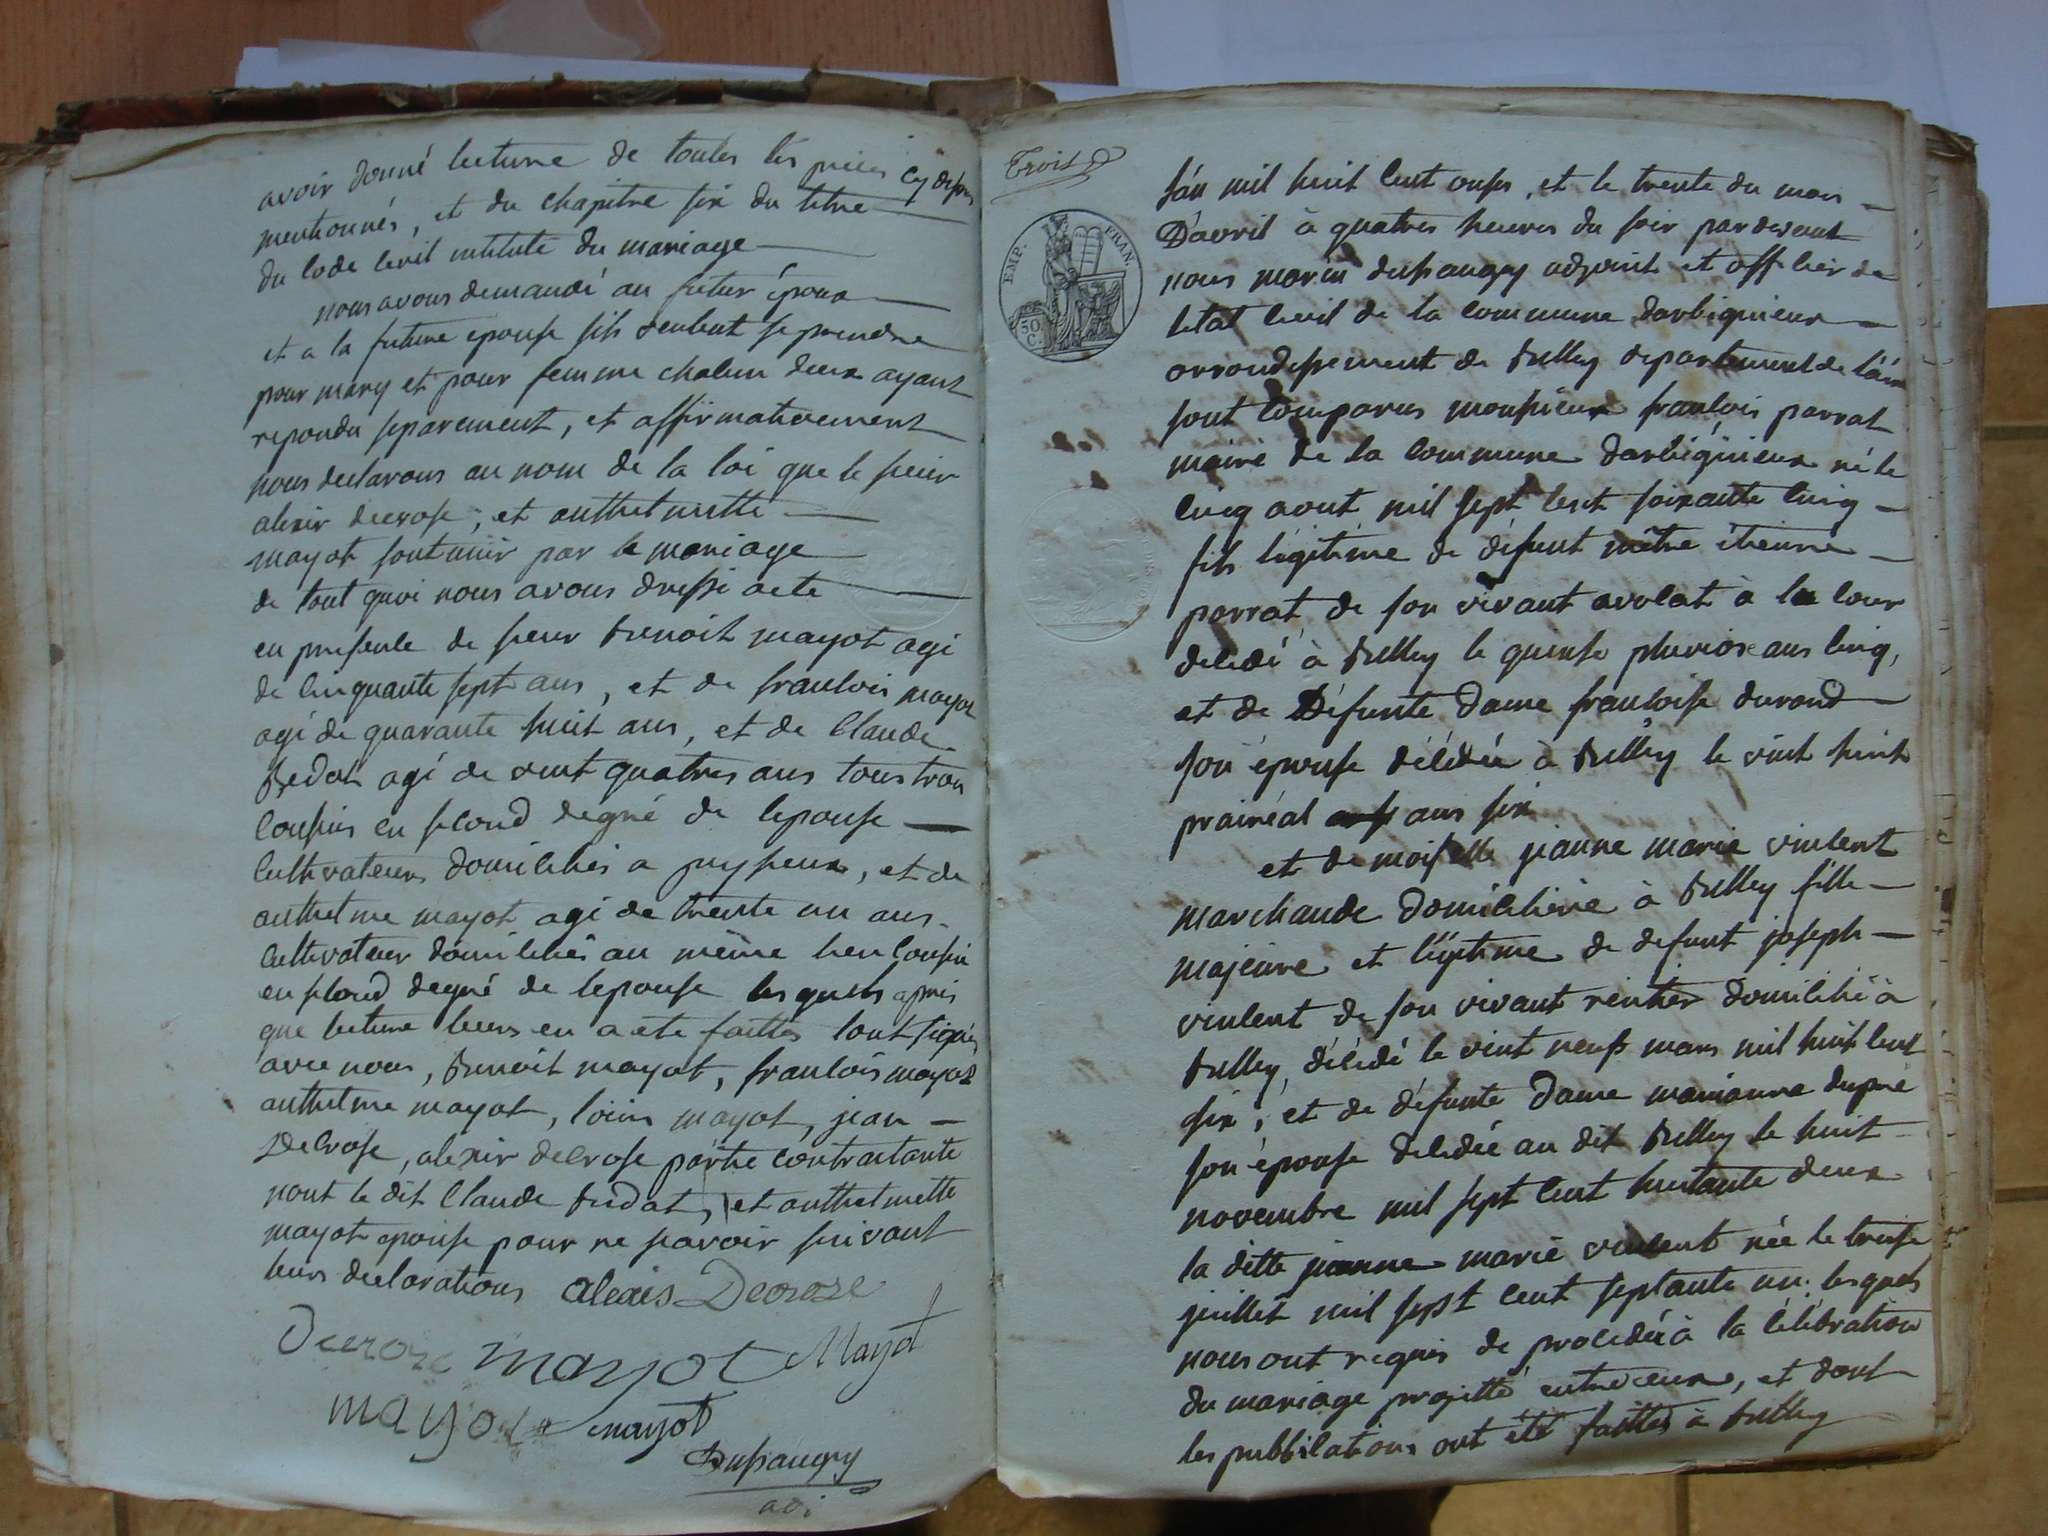 avoir donné lecture de toutes les pieces cy dessus
mentionnés, et du chapitre six du titre
du Code Civil intitule du mariage
nous avons demandé au futur époux
et a la future epouse sils veulent se prendre
pour mary et pour femme chalun deux ayant
repondu separement, et affirmativement
nous declarons au nom de la loi que le sieur
alexis decrose, et anthelmette
mayot sont unis par le mariage
de tout quoi nous avons dressé acte
en presence de sieur Benoit mayot agé
de cinquante sept ans, et de francois mayot
agé de quarante huit ans, et de Claude
Bedat agé de vint quatres ans tous trois
cousins en second degré de lepouse
Cultivateurs domiciliés a puysieux, et de
anthelme mayot agé de trente un ans
cultivateur domiciliés au même lieu cousin
en second degré de lepouse les quels apres
que lecture leurs en a eté faittes lont signés
avec nous, Benoit mayot, francois mayot
anthelme mayot, loüis mayot, jean
Decrose, alexis decrose partie contractante
nont le dit Claude Bedat, et anthelmette
mayot epouse pour ne savoir suivant
leurs declarations alexis Decroze
Decroze mayot Mayot
mayot mayot
Dussaugey
adj
Trois
EMP. FRAN.
50 C.
l'an mil huit cent onse, et le trente du mois
D'avril à quatres heures du soir pardevant
nous marin dussaugey adjoint et officier de
letat Civil de la commune darbignieux
arrondissement de Belley departement de l'ain
sont Comparus monsieur francois parrat
maire de la commune d'arbignieux né le
cinq aout mil sept cent soixante cinq
fils légitime de défunt mêtre étienne
parrat de son vivant avocat à la cour
décédé à Belley le quinse pluviose ans cinq,
et de Défunte dame francoise durand
son épouse décédée à Belley le vint huit
prairéal ans six
et demoiselle jeanne marie vincent
marchande domicilièrie à Belley fille
majeure et légitime de defunt joseph
vincent de son vivant rentier domicilié à
Belley, décédé le vint neuf mars mil huit cent
six, et de défunte Dame marianne dupré
son épouse décédée au dit Belley le huit
novembre mil sept cent huitante deux
la ditte jeanne marie vincent née le treise
juillet mil sept cent septante un. les quels
nous ont requis de procédér à la célébration
du mariage projetté entre eux, et dont
les publications ont été faittes à Belley